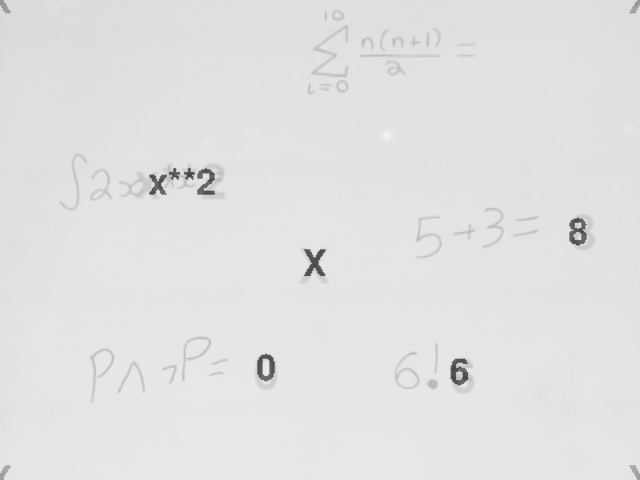 10
∑ n(n+1)/2 =
i=0
∫2x x**2
5+3= 8
X
P∧¬P= 0
6! 6